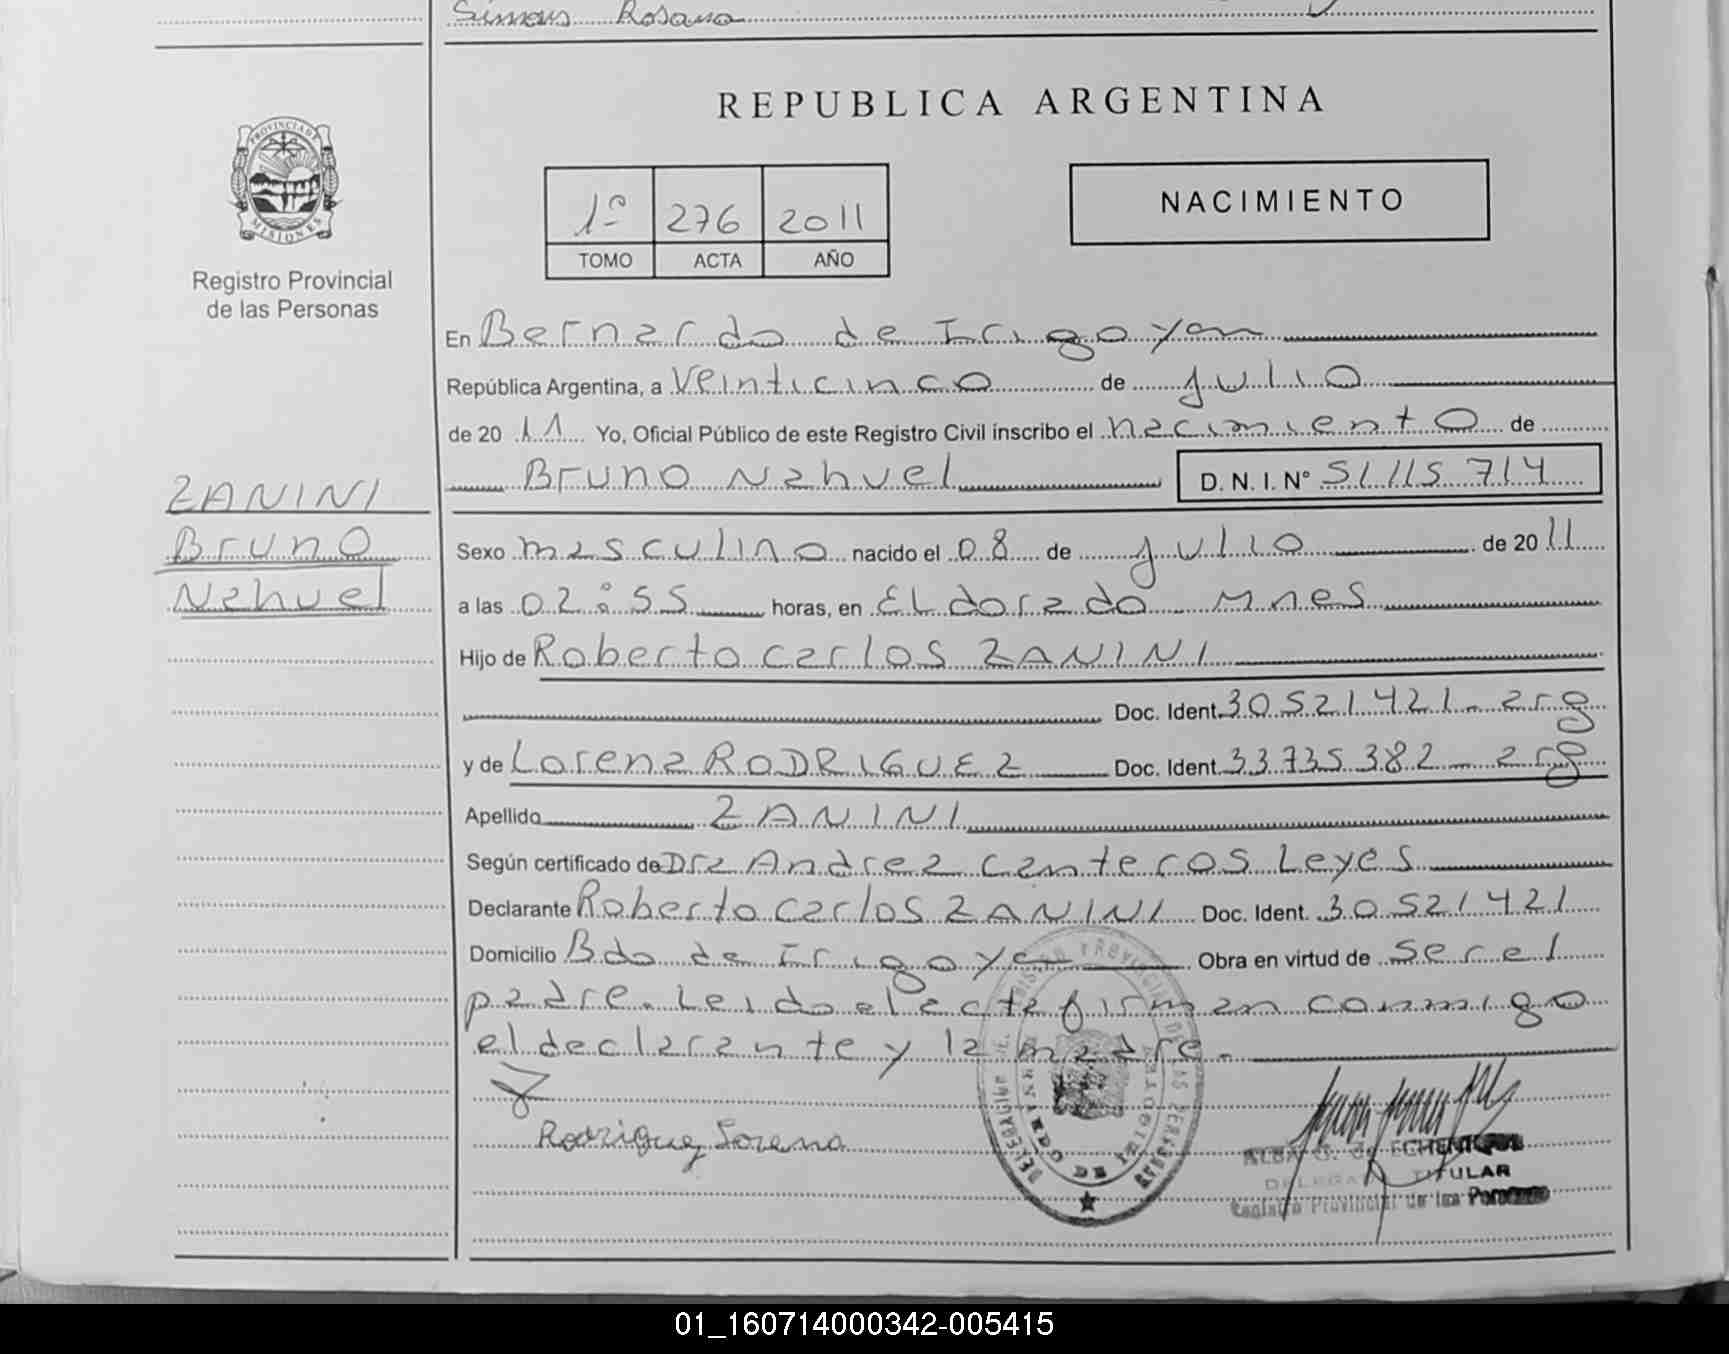 Simons Rosana
REPUBLICA ARGENTINA
PROVINCIA DE
MISIONES
Registro Provincial
de las Personas
1º 276 2011
TOMO ACTA AÑO
NACIMIENTO
En Bernardo de Irigoyen
República Argentina, a Veinticinco de julio
de 20 11 Yo, Oficial Público de este Registro Civil inscribo el nacimiento de
Bruno Nahuel D. N. I. Nº 51 115 714
ZANINI
Bruno
Nahuel
Sexo masculino nacido el 08 de julio de 20 11
a las 02:55 horas, en ELdorado Mnes
Hijo de Roberto Carlos ZANINI
Doc. Ident. 30521421- arg
y de Lorena RODRIGUEZ Doc. Ident. 33735382- arg
Apellido ZANINI
Según certificado de Dra Andrea Canteros Leyes
Declarante Roberto Carlos ZANINI Doc. Ident. 30521421
Domicilio Bdo de Irigoyen Obra en virtud de ser el
padre. Leido el acta firman conmigo
el declarante y la madre.-
Rodriguez Lorena
ALBA G. de ECHENIQUE
DELEGADA TITULAR
Registro Provincial de las Personas
01_160714000342-005415